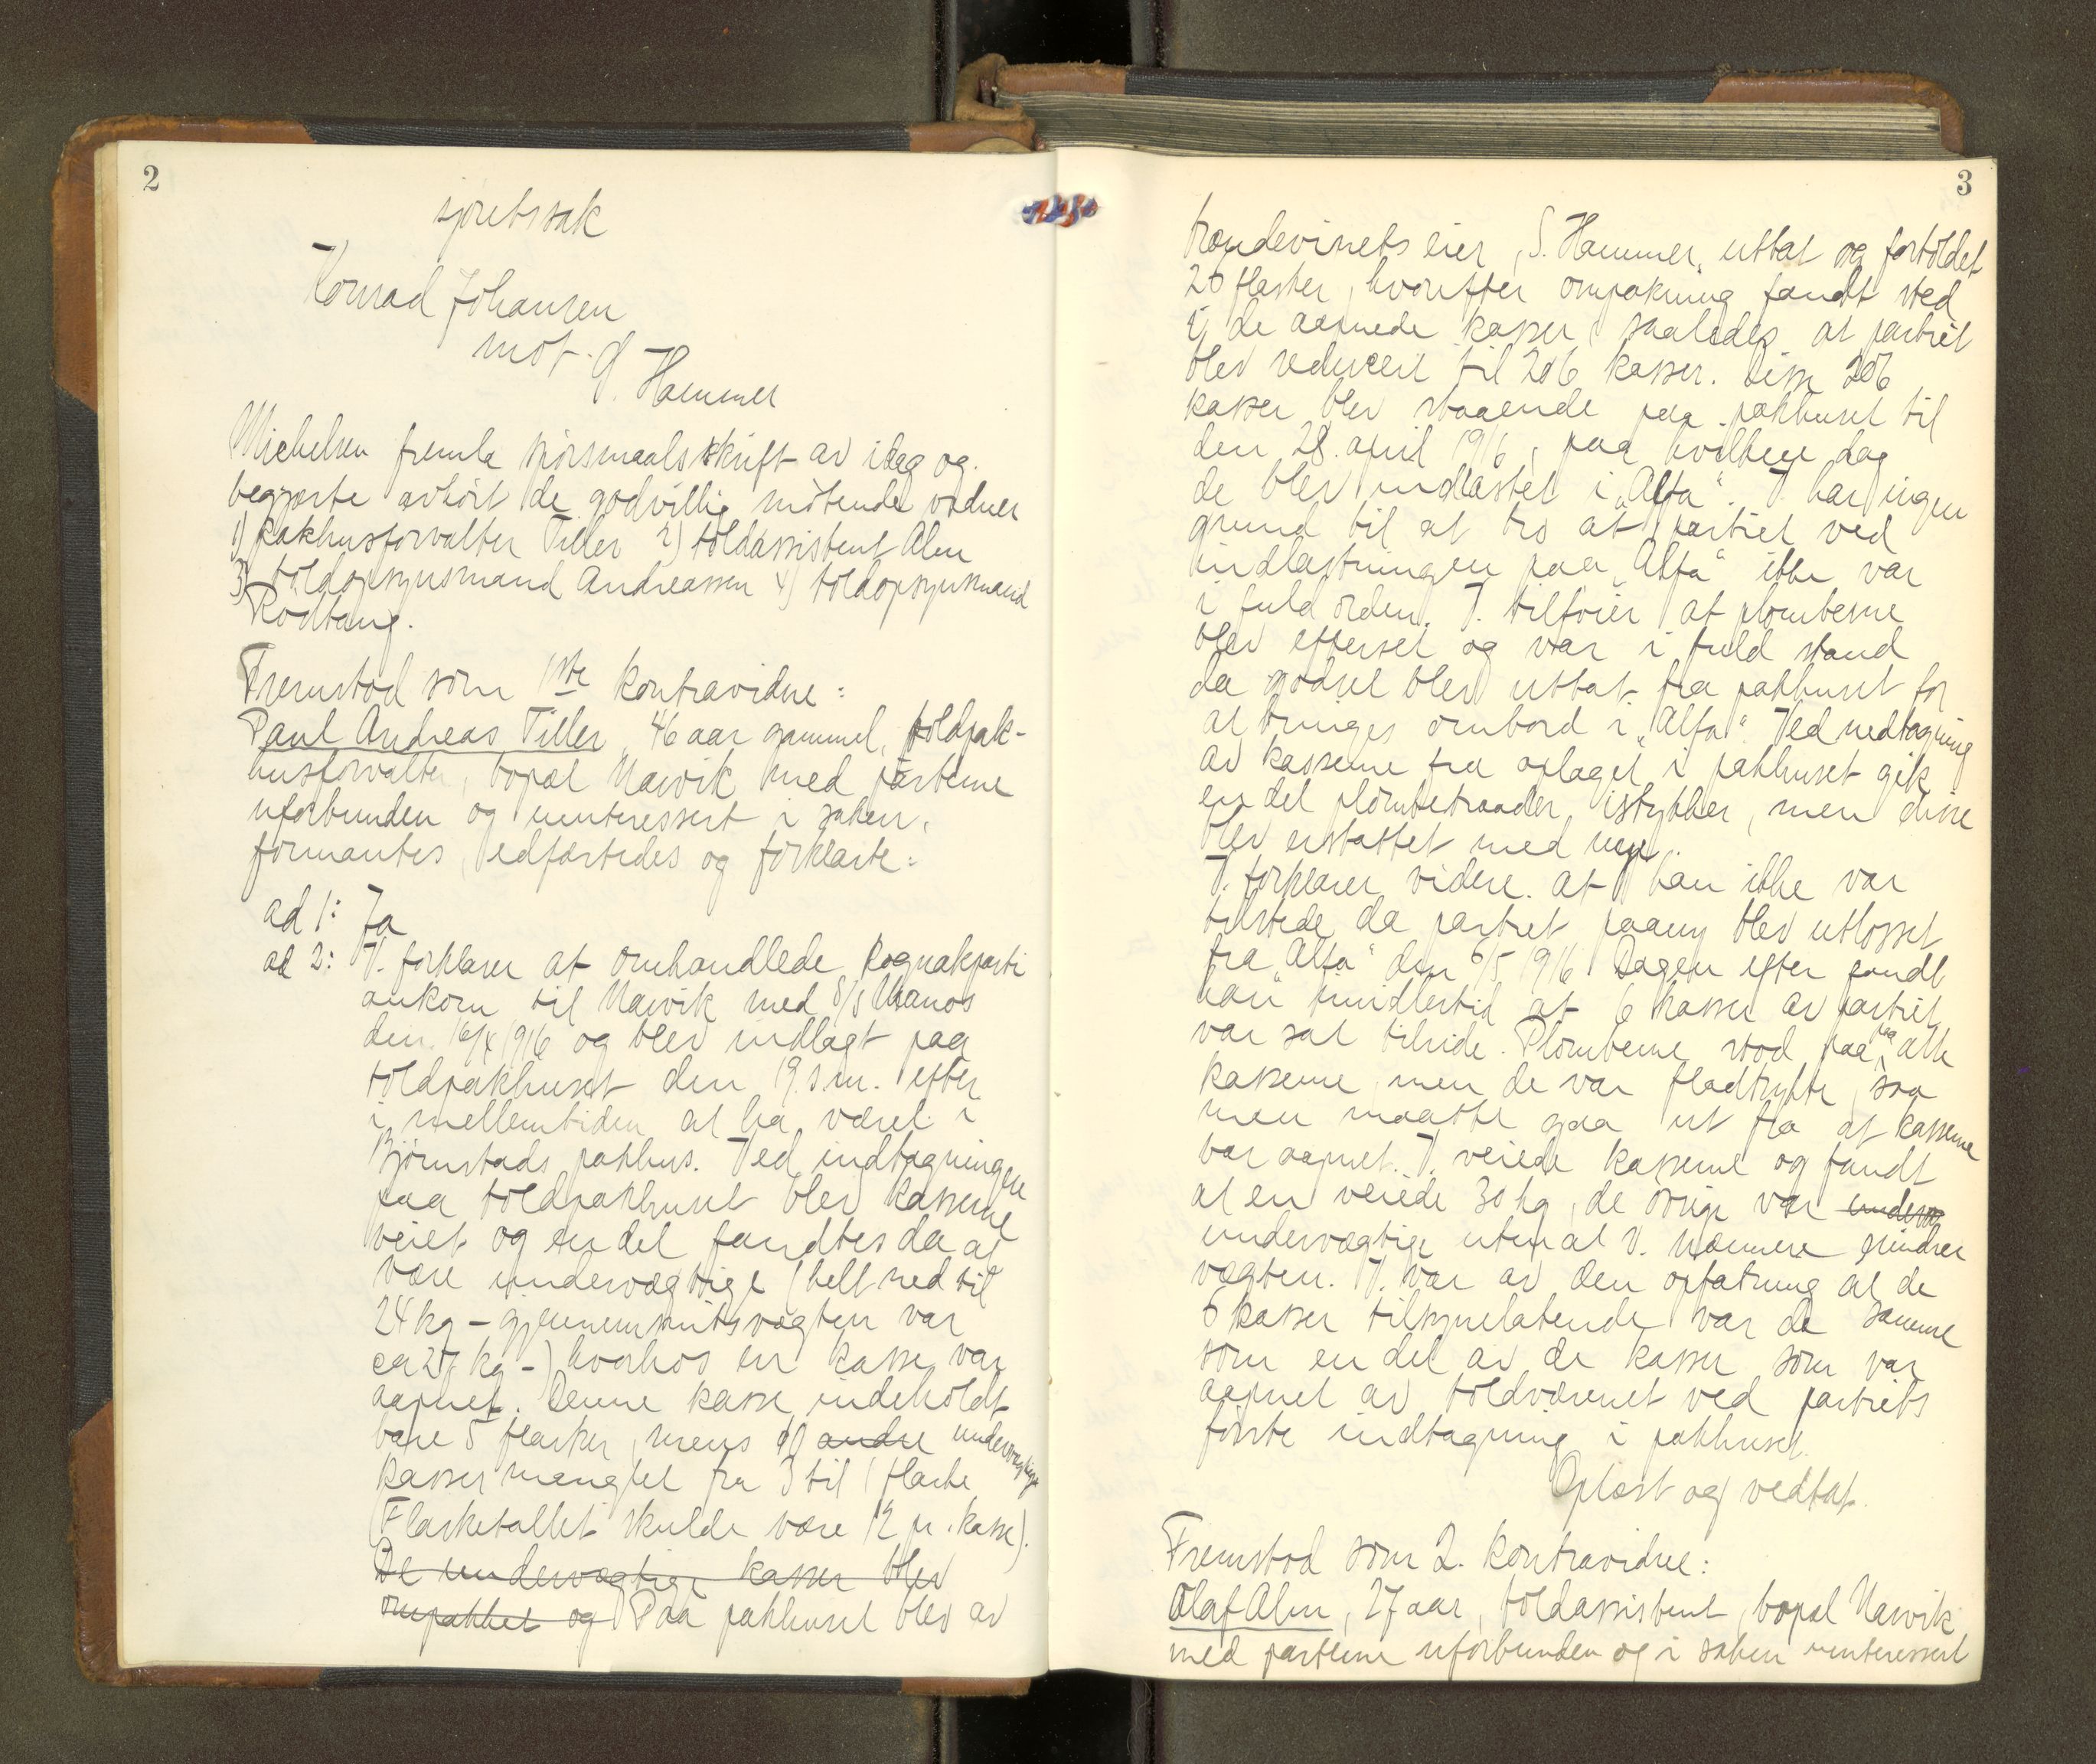 2
sjøretssak
Konrad Johansen
mot
S. Hammer
Michelsen fremla spörsmaalsskrift av idag og
begjærte avhört de godvillig mötende vidner
1) pakhusforvalter Tiller 2) toldassistent Alm
3) toldopsynsmand Andreassen 4) toldopsynsmand
Rödtang.
Fremstod som 1ste kontravidne:
Paul Andreas Tiller, 46 aar gammel, toldpak-
husforvalter, bopæl Narvik med parterne
uforbunden og uinteressert i saken,
formantes, edfæstedes og forklarte:
ad 1: Ja
ad 2: V. forklarer at omhandlede kognakparti
ankom til Narvik med s/s Uranos
den 16/4 1916 og blev indlagt paa
toldpakhuset den 19. s.m. efter
i mellemtiden at ha været i
Björnstads pakhus. Ved indtagningen
paa toldpakhuset blev kasserne
veiet og en del fandtes da at
være undervægtige (helt ned til
24 kg – gjennemsnitsvægten var
ca 27 kg –) hvorhos en kasse var
aapnet. Denne kasse indeholdt
bare 5 flasker, mens 10 andre undervægtige
kasser manglet fra 3 til 1 flaske
(Flasketallet skulde være 12 pr. kasse).
De undervægtige kasser blev
ompakket og Paa pakhuset blev av
3
brændevinets eier, S. Hammer, uttat og fortoldet
20 flasker, hvorefter ompakning fandt sted
i de aapnede kasser saaledes at partiet
blev reducert til 206 kasser. Disse 206
kasser blev staaende paa pakhuset til
den 28. april 1916, paa hvilken dag
de blev indlastet i „Alfa“. V. har ingen
grund til at tro at partiet ved
indlastningen paa „Alfa“ ikke var
i fuld orden. V. tilföier at plomberne
blev efterset og var i fuld stand
da godset blev uttat fra pakhuset for
at bringes ombord i „Alfa“. Ved nedtagning
av kasserne fra oplaget i pakhuset gik
en del plombetraader istykker, men disse
blev erstattet med nye.
V. forklarer videre at han ikke var
tilstede da partiet paany blev utlosset
fra „Alfa“ den 6/5 1916. Dagen efter fandt
han imidlertid at 6 kasser av partiet
var sat tilside. Plomberne stod paa paa alle
kasserne men de var fladtrykte, saa
men maatte gaa ut fra at kasserne
var aapnet. V. veiede kasserne og fandt
at en veiede 30 kg, de övrige var underv
undervægtige uten at V. nærmere erindrer
vægten. V. var av den opfatning at de
6 kasser tilsynelatende var de samme
som en del av de kasser som var
aapnet av toldvæsenet ved partiets
förste indtagning i pakhuset.
Oplæst og vedtat.
Fremstod som 2. kontravidne:
Olaf Alm, 27 aar, toldassistent, bopæl Narvik
med parterne uforbunden og i saken uinteressert